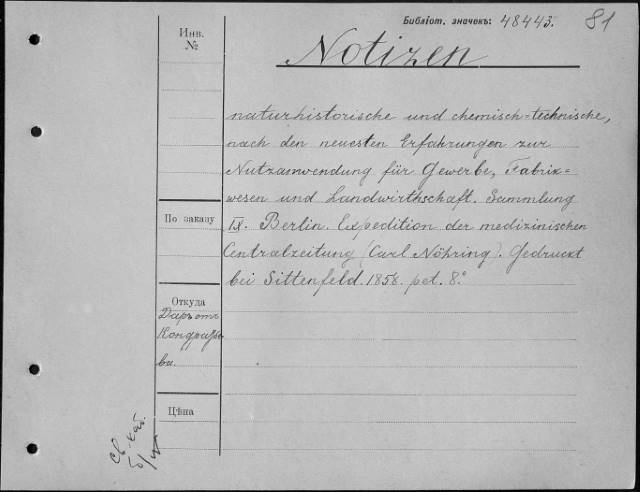 Библіот. значекъ: 48443.
81
Инв. №
Notizen
naturhistorische und chemisch=technische,
nach den neuesten Erfahrungen zur
Nutzanwendung für Gewerbe, Fabrik=
wesen und Landwirthschaft. Sammlung
IX. Berlin. Expedition der medizinischen
Centralzeitung (Carl Nöhring). Gedruckt
bei Sittenfeld. 1858. pet. 8.°
По заказу
Откуда
Даръ отъ
Кондратье
ва.
Цѣна
св. кат.